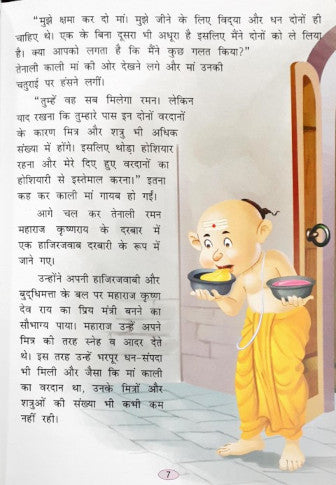 "मुझे क्षमा कर दो मां। मुझे जीने के लिए विद्या और धन दोनों ही
चाहिए थे। एक के बिना दूसरा भी अधूरा है इसलिए मैंने दोनों को ले लिया
है। क्या आपको लगता है कि मैंने कुछ गलत किया?"
तेनाली काली मां की ओर देखने लगे और मां उनकी
चतुराई पर हंसने लगीं।
"तुम्हें वह सब मिलेगा रमन। लेकिन
याद रखना कि तुम्हारे पास इन दोनों वरदानों
के कारण मित्र और शत्रु भी अधिक
संख्या में होंगे। इसलिए थोड़ा होशियार
रहना और मेरे दिए हुए वरदानों का
होशियारी से इस्तेमाल करना।" इतना
कह कर काली मां गायब हो गईं।
आगे चल कर तेनाली रमन
महाराज कृष्णराय के दरबार में
एक हाजिरजवाब दरबारी के रूप में
जाने गए।
उन्होंने अपनी हाजिरजवाबी और
बुद्धिमत्ता के बल पर महाराज कृष्ण
देव राय का प्रिय मंत्री बनने का
सौभाग्य पाया। महाराज उन्हें अपने
मित्र की तरह स्नेह व आदर देते
थे। इस तरह उन्हें भरपूर धन-संपदा
भी मिली और जैसा कि मां काली
का वरदान था, उनके मित्रों और
शत्रुओं की संख्या भी कभी कम
नहीं रही।
7